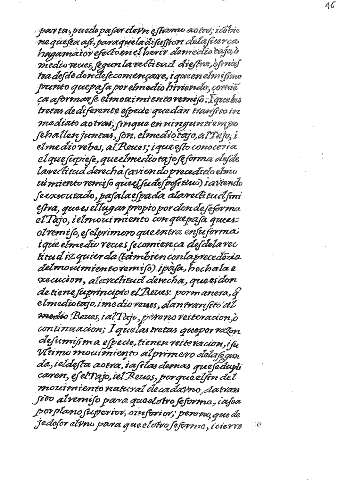 16
parta, puede pasar de un estremo a otro; i si tiene
que esta asi, para que la disposicion de la fuerça
haga maior efecto en el herir de medio tajo, o
medio reues, segun la rectitud diestra, o sinies
tra desde donde se començare, i que en el mismo
punto que pasa por el medio hiriendo, comiẽça
a formarse el mouimiento remiso. I que las
tretas de diferente especie quedan transito in
mediato a otras, sin que en ningun tiempo
se hallen juntas, son, el medio tajo, al Tajo, i
el medio rebes, al Reues; i que esto conoceria
el que supiese, que el medio tajo se forma desde
la rectitud derecha (auiendo precedido el mo
uimiento remiso que llsu dispositiuo) i auiendo
se executado, pasa la espada a la rectitud sini
estra, que es el lugar propio por donde se forma
el Tajo, i el mouimiento con que pasa, que es
el remiso, es el primero que entra en su forma:
i que el medio reues se comiença desde la rec
titud izquierda (tambien con la precedencia
del mouimiento remiso) i pasa, hecha la e
xecucion, a la rectitud derecha, que es don
de tiene su principio el Reues. por manera, q̃
el medio tajo, i medio reues, dan transito al
medio Reues, i al Tajo, por via no reiteracion, o
continuacion; I que las tretas que por razon
de su misma especie, tienen reiteracion, i su
vltimo mouimiento al primero de la segun
da, i el desta a otra, i asi las demas que se dupli
caren, es el Tajo, i el Reues, por que el fin del
mouimiento natural de cada vno, da tran
sito al remiso para que el otro se forme, i a sea
por plano superior, o inferior; pero no, que de
je de ser al vno para que el otro se forme, i cierre